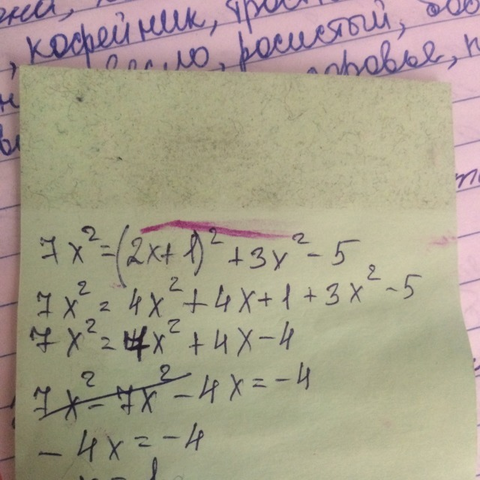 , кофейник,
весло, росистый,
7x² = (2x+1)² + 3x² - 5
7x² = 4x² + 4x + 1 + 3x² - 5
7x² = 7x² + 4x - 4
7x² - 7x² - 4x = -4
- 4x = -4